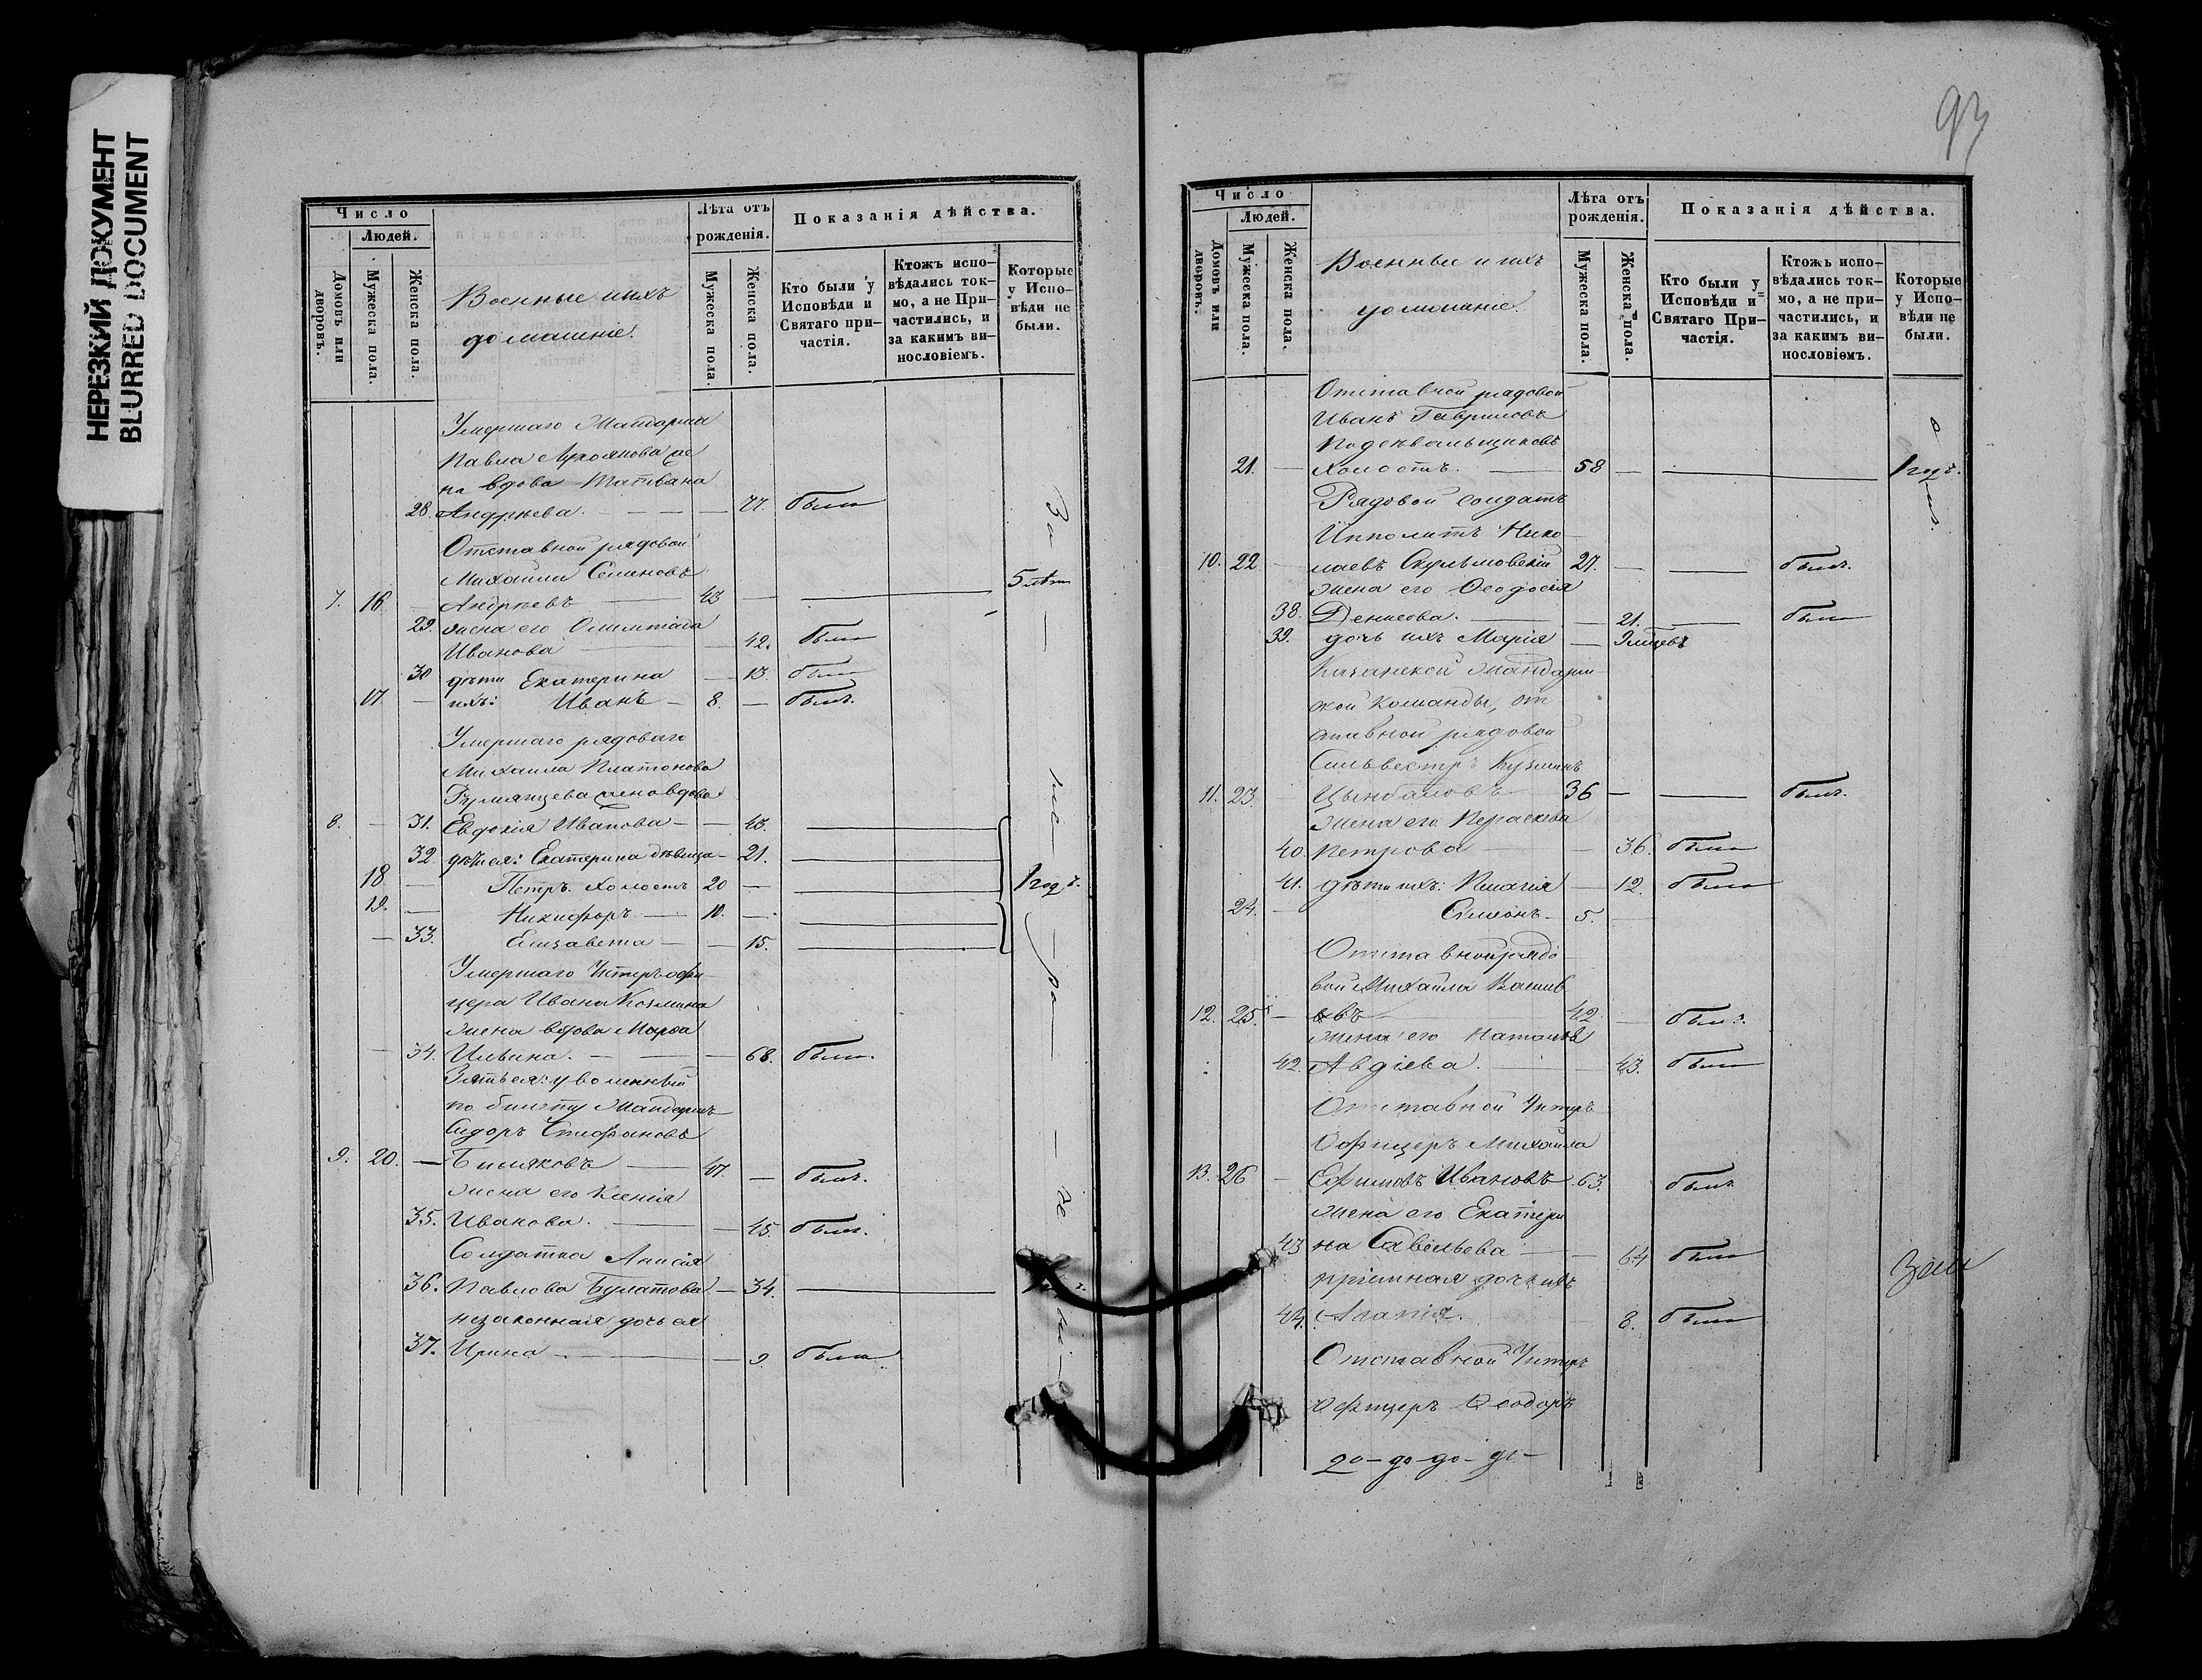 НЕРЕЗКИЙ ДОКУМЕНТ
BLURRED DOCUMENT
Число
Людей.
Домовъ или дворовъ.
Мужеска пола.
Женска пола.
Военные и ихъ
домашніе.
Лѣта отъ рожденія.
Мужеска пола.
Женска пола.
Показанія дѣйства.
Кто были у Исповѣди и Святаго при-частія.
Ктожъ испо-вѣдались ток-мо, а не При-частились, и за какимъ ви-нословіемъ.
Которые у Испо-вѣди не были.
Умершаго Жандарма
Павла Лукоянова же
на вдова Татіана
28. Андреева. — — — 77. была
Отставной рядовой
Михаилъ Семеновъ
7. 16. — Андреевъ — 43 — — 5 лѣтъ
29. жена его Олимпіада
Иванова — — 42. была
30 дѣти Екатерина — 13. была
17. — ихъ: Иванъ — 8. — былъ.
Умершаго рядоваго
Михаила Платонова
Румянцева жена вдова
8. — 31. Евдокія Иванова — — 43.
32. дѣти ея: Екатерина дѣвица — 21.
18 — Петръ холостъ 20 — 1 годъ.
19. — Никифоръ — 10. —
— 33. Елизавета — — 15.
Умершаго Унтеръ офи
цера Ивана Козмина
жена вдова Марѳа
— 34. Ильина. — — — 68. была.
Зять ея: уволенный
по билету Жандармъ
Сидоръ Стефановъ
9. 20. — Биляковъ — 47. — былъ.
жена его Ксенія
35. Иванова. — — 45. была.
Солдатка Анисія
36. Павлова Булатова — 34. —
незаконная дочь ея
37. Ирина — — 9. была
За
93
Число
Людей.
Домовъ или дворовъ.
Мужеска пола.
Женска пола.
Военные и ихъ
домашніе.
Лѣта отъ рожденія.
Мужеска пола.
Женска пола.
Показанія дѣйства.
Кто были у Исповѣди и Святаго При-частія.
Ктожъ испо-вѣдались ток-мо, а не при-частились, и за какимъ ви-нословіемъ.
Которые у Испо-вѣди не были.
Отставной рядовой
Иванъ Гавриловъ
Подсѣвальщиковъ
21. — холостъ. — 58 — — 1 годъ.
Рядовой солдатъ
Ипполитъ Нико
10. 22 — лаевъ 27. — — былъ.
жена его Ѳеодосія
38. Денисова. — — 21. — была
39. дочь ихъ Марія — 9 мѣсцевъ
Казанской Жандарм
ской команды, от
ставной рядовой
Сильвестръ Кузминъ
11. 23. — Цынбаловъ — 36 — — былъ.
жена его Параскева
40. Петрова — — 36. была
41. дѣти ихъ: Пелагія — 12. была
24. — Симеонъ — 5. —
Отставной рядо
вой Михаилъ Василь
12. 25. — евъ — 42. — былъ.
жена его Наталія
42. Авдіева. — — 43. была
Отставной Унтеръ
Офицеръ Михаилъ
13. 26 — Ефимовъ Ивановъ 63. былъ
жена его Екатери
43 на Савельева — — 64 была
пріемная дочь ихъ
44. Агапія. — 8. была
Отставной Унтеръ
Офицеръ Ѳеодоръ